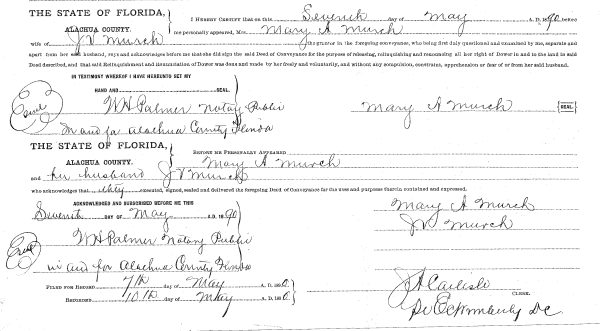 THE STATE OF FLORIDA,
ALACHUA COUNTY.
I HEREBY CERTIFY that on this Seventh day of May A. D. 1890 before
me personally appeared, Mrs. Mary A Murch
wife of J V Murch the grantor in the foregoing conveyance, who being first duly questioned and examined by me, separate and
apart from her said husband, says and acknowledges before me that she did sign the said Deed of Conveyance for the purpose of releasing, relinquishing and renouncing all her right of Dower in and to the land in said
Deed described, and that said Relinquishment and Renunciation of Dower was done and made by her freely and voluntarily, and without any compulsion, constraint, apprehension or fear of or from her said husband.
IN TESTIMONY WHEREOF I HAVE HEREUNTO SET MY
HAND AND SEAL.
Seal W H Palmer Notary Public
In and for Alachua County Florida
Mary A Murch SEAL.
THE STATE OF FLORIDA,
ALACHUA COUNTY.
BEFORE ME PERSONALLY APPEARED
Mary A Murch
and her husband J V Murch
who acknowledges that they executed, signed, sealed and delivered the foregoing Deed of Conveyance for the uses and purposes therein contained and expressed.
ACKNOWLEDGED AND SUBSCRIBED BEFORE ME THIS
Seventh DAY OF May A. D. 1890
Mary A Murch
J V Murch
Seal W H Palmer Notary Public
in and for Alachua County Florida
FILED FOR RECORD 7th day of May A. D. 1890.
RECORDED 10th day of May A. D. 1890.
J A Carlisle
CLERK.
D C